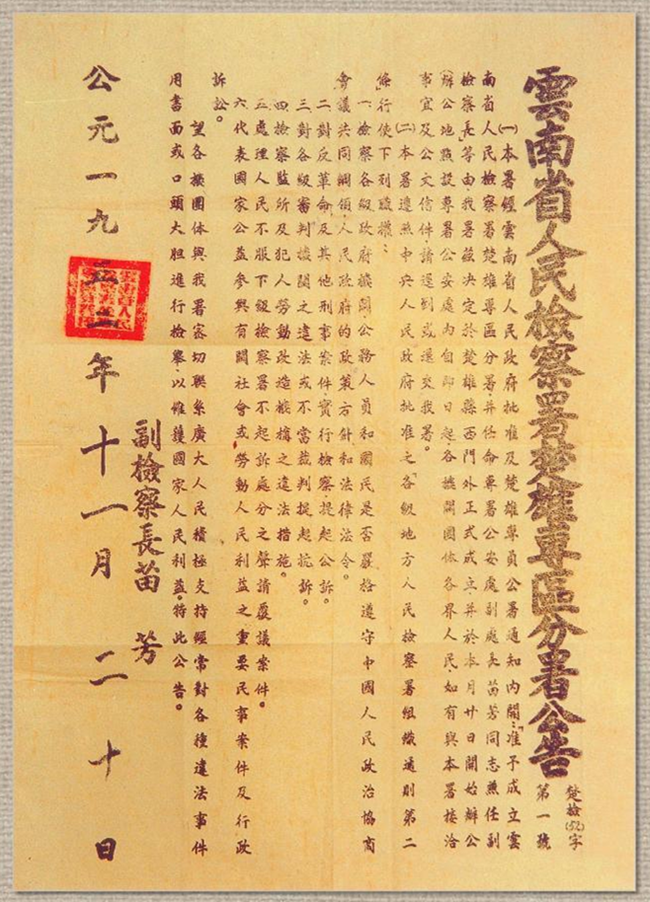 雲南省人民檢察署楚雄專區分署公告
楚檢(52)字
第一號
(一)本署經雲南省人民政府批准及楚雄專員公署通知內開:「准予成立雲
南省人民檢察署楚雄專區分署,并任命專署公安處副處長苗芳同志兼任副
檢察長」等由我署茲决定於楚雄縣西門外正式成立,并於本月廿日開始辦公
(辦公地點設專署公安處內)自即日起各機關團体各界人民,如有與本署接洽
事宜及公文信件,請逕到或逕交我署。
(二)本署遵照中央人民政府批准之「各級地方人民檢察署組織通則第二
條」行使下列職權:
一、檢察各級政府機關公務人員和國民是否嚴格遵守中國人民政治協商
會議共同綱領,人民政府的政策方針和法律法令。
二、對反革命及其他刑事案件,實行檢察,提起公訴。
三、對各級審判機關之違法或不當裁判提起抗訴。
四、檢察監所及犯人勞動改造機構之違法措施。
五、處理人民不服下級檢察署不起訴處分之聲請覆議案件。
六、代表國家公益參與有關社會或勞動人民利益之重要民事案件及行政
訴訟。
望各機團体與我署密切聯系廣大人民積極支持經常對各種違法事件
用書面或口頭大胆進行檢舉,以維護國家人民利益。特此公告。
副檢察長苗 芳
公元一九五二年十一月二十日